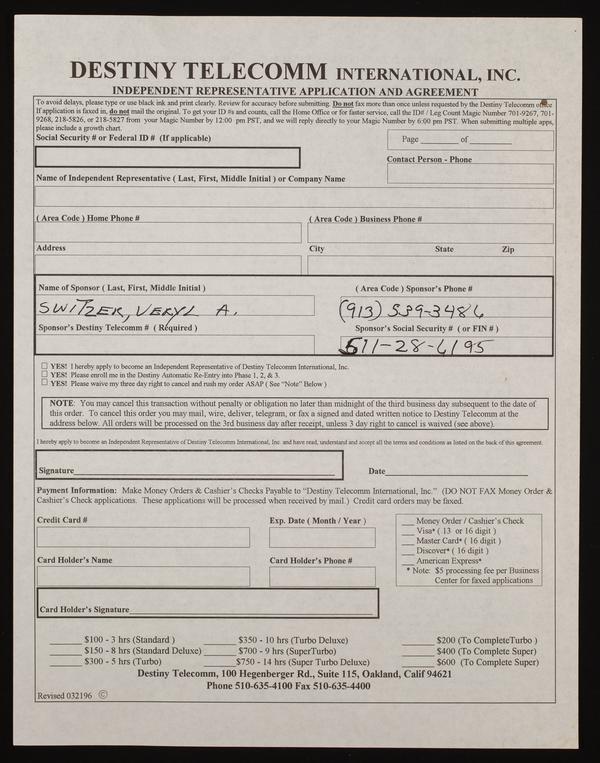 DESTINY TELECOMM INTERNATIONAL, INC.
INDEPENDENT REPRESENTATIVE APPLICATION AND AGREEMENT
To avoid delays, please type or use black ink and print clearly. Review for accuracy before submitting. Do not fax more than once unless requested by the Destiny Telecomm office
If application is faxed in, do not mail the original. To get your ID #s and counts, call the Home Office or for faster service, call the ID# / Leg Count Magic Number 701-9267, 701-
9268, 218-5826, or 218-5827 from your Magic Number by 12:00 pm PST, and we will reply directly to your Magic Number by 6:00 pm PST. When submitting multiple apps,
please include a growth chart.
Social Security # or Federal ID # (If applicable)
Page ______ of ______
Contact Person - Phone
Name of Independent Representative ( Last, First, Middle Initial ) or Company Name
( Area Code ) Home Phone # ( Area Code ) Business Phone #
Address City State Zip
Name of Sponsor ( Last, First, Middle Initial ) ( Area Code ) Sponsor's Phone #
SWITZER, VERYL A. (913) 539-3486
Sponsor's Destiny Telecomm # ( Required ) Sponsor's Social Security # ( or FIN # )
511-28-6195
YES! I hereby apply to become an Independent Representative of Destiny Telecomm International, Inc.
YES! Please enroll me in the Destiny Automatic Re-Entry into Phase 1, 2, & 3.
YES! Please waive my three day right to cancel and rush my order ASAP ( See "Note" Below )
NOTE: You may cancel this transaction without penalty or obligation no later than midnight of the third business day subsequent to the date of
this order. To cancel this order you may mail, wire, deliver, telegram, or fax a signed and dated written notice to Destiny Telecomm at the
address below. All orders will be processed on the 3rd business day after receipt, unless 3 day right to cancel is waived (see above).
I hereby apply to become an Independent Representative of Destiny Telecomm International, Inc. and have read, understand and accept all the terms and conditions as listed on the back of this agreement.
Signature Date
Payment Information: Make Money Orders & Cashier's Checks Payable to "Destiny Telecomm International, Inc." (DO NOT FAX Money Order &
Cashier's Check applications. These applications will be processed when received by mail.) Credit card orders may be faxed.
Credit Card # Exp. Date ( Month / Year )
___ Money Order / Cashier's Check
___ Visa* ( 13 or 16 digit )
___ Master Card* ( 16 digit )
___ Discover* ( 16 digit )
___ American Express*
* Note: $5 processing fee per Business
Center for faxed applications
Card Holder's Name Card Holder's Phone #
Card Holder's Signature
______ $100 - 3 hrs (Standard ) ______ $350 - 10 hrs (Turbo Deluxe) ______ $200 (To CompleteTurbo )
______ $150 - 8 hrs (Standard Deluxe) ______ $700 - 9 hrs (SuperTurbo) ______ $400 (To Complete Super)
______ $300 - 5 hrs (Turbo) ______ $750 - 14 hrs (Super Turbo Deluxe) ______ $600 (To Complete Super)
Destiny Telecomm, 100 Hegenberger Rd., Suite 115, Oakland, Calif 94621
Phone 510-635-4100 Fax 510-635-4400
Revised 032196 ©